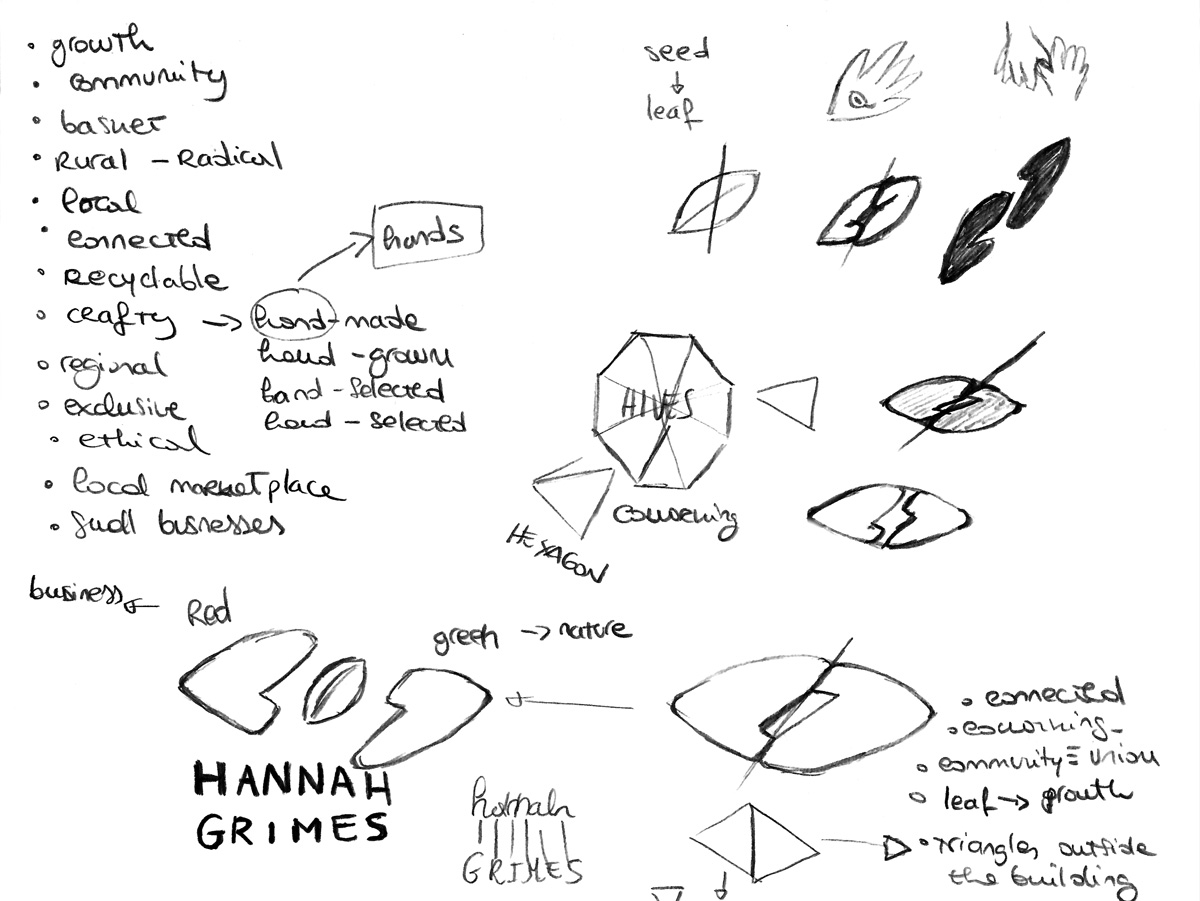 growth
community
basket
Rural - Radical
local
connected
Recyclable
crafty → hand-made
hands
hand - grown
hand - selected
hand - selected
regional
exclusive
ethical
local marketplace
small businesses
seed
↓
leaf
HIVES
HEXAGON
coworking
business ←
Red
green → nature
HANNAH
GRIMES
hannah
GRIMES
connected
coworking
community = union
leaf → growth
triangles outside
the building